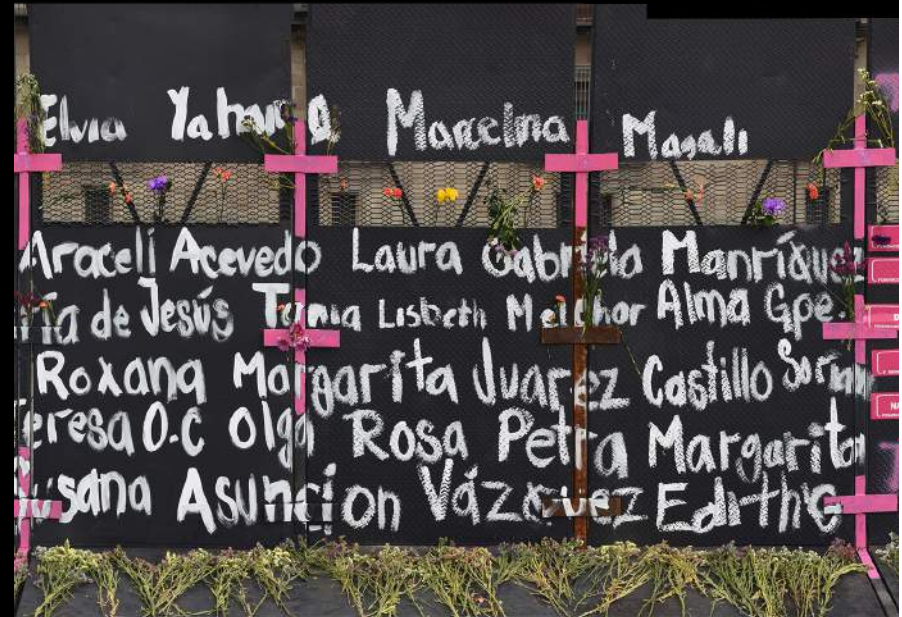 Elvia Yahaira Marcelina Magali
Araceli Acevedo Laura Gabriela Manríquez
Ma de Jesús Tania Lisbeth Melchor Alma Gpe.
Roxana Margarita Juarez Castillo Soriano
Teresa O.C Olga Rosa Petra Margarita
Susana Asuncion Vázquez Edith G